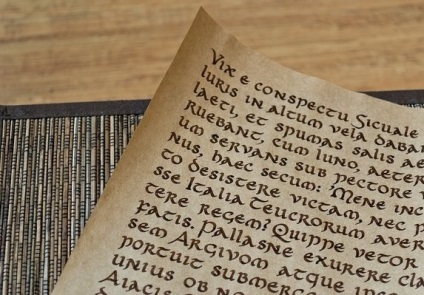 Vix e conspectu Siculae
luris in altum vela daban
laeti, et spumas salis ae
ruebant, cum Iuno, aeter
um servans sub pectore v
nus, haec secum: 'Mene inc
to desistere victam, nec p
sse Italia Teucrorum aver
tere regem? Quippe vetor
fatis. Pallasne exurere cla
sem Argivom atque ips
portuit submerg
unius ob no
Aiacis